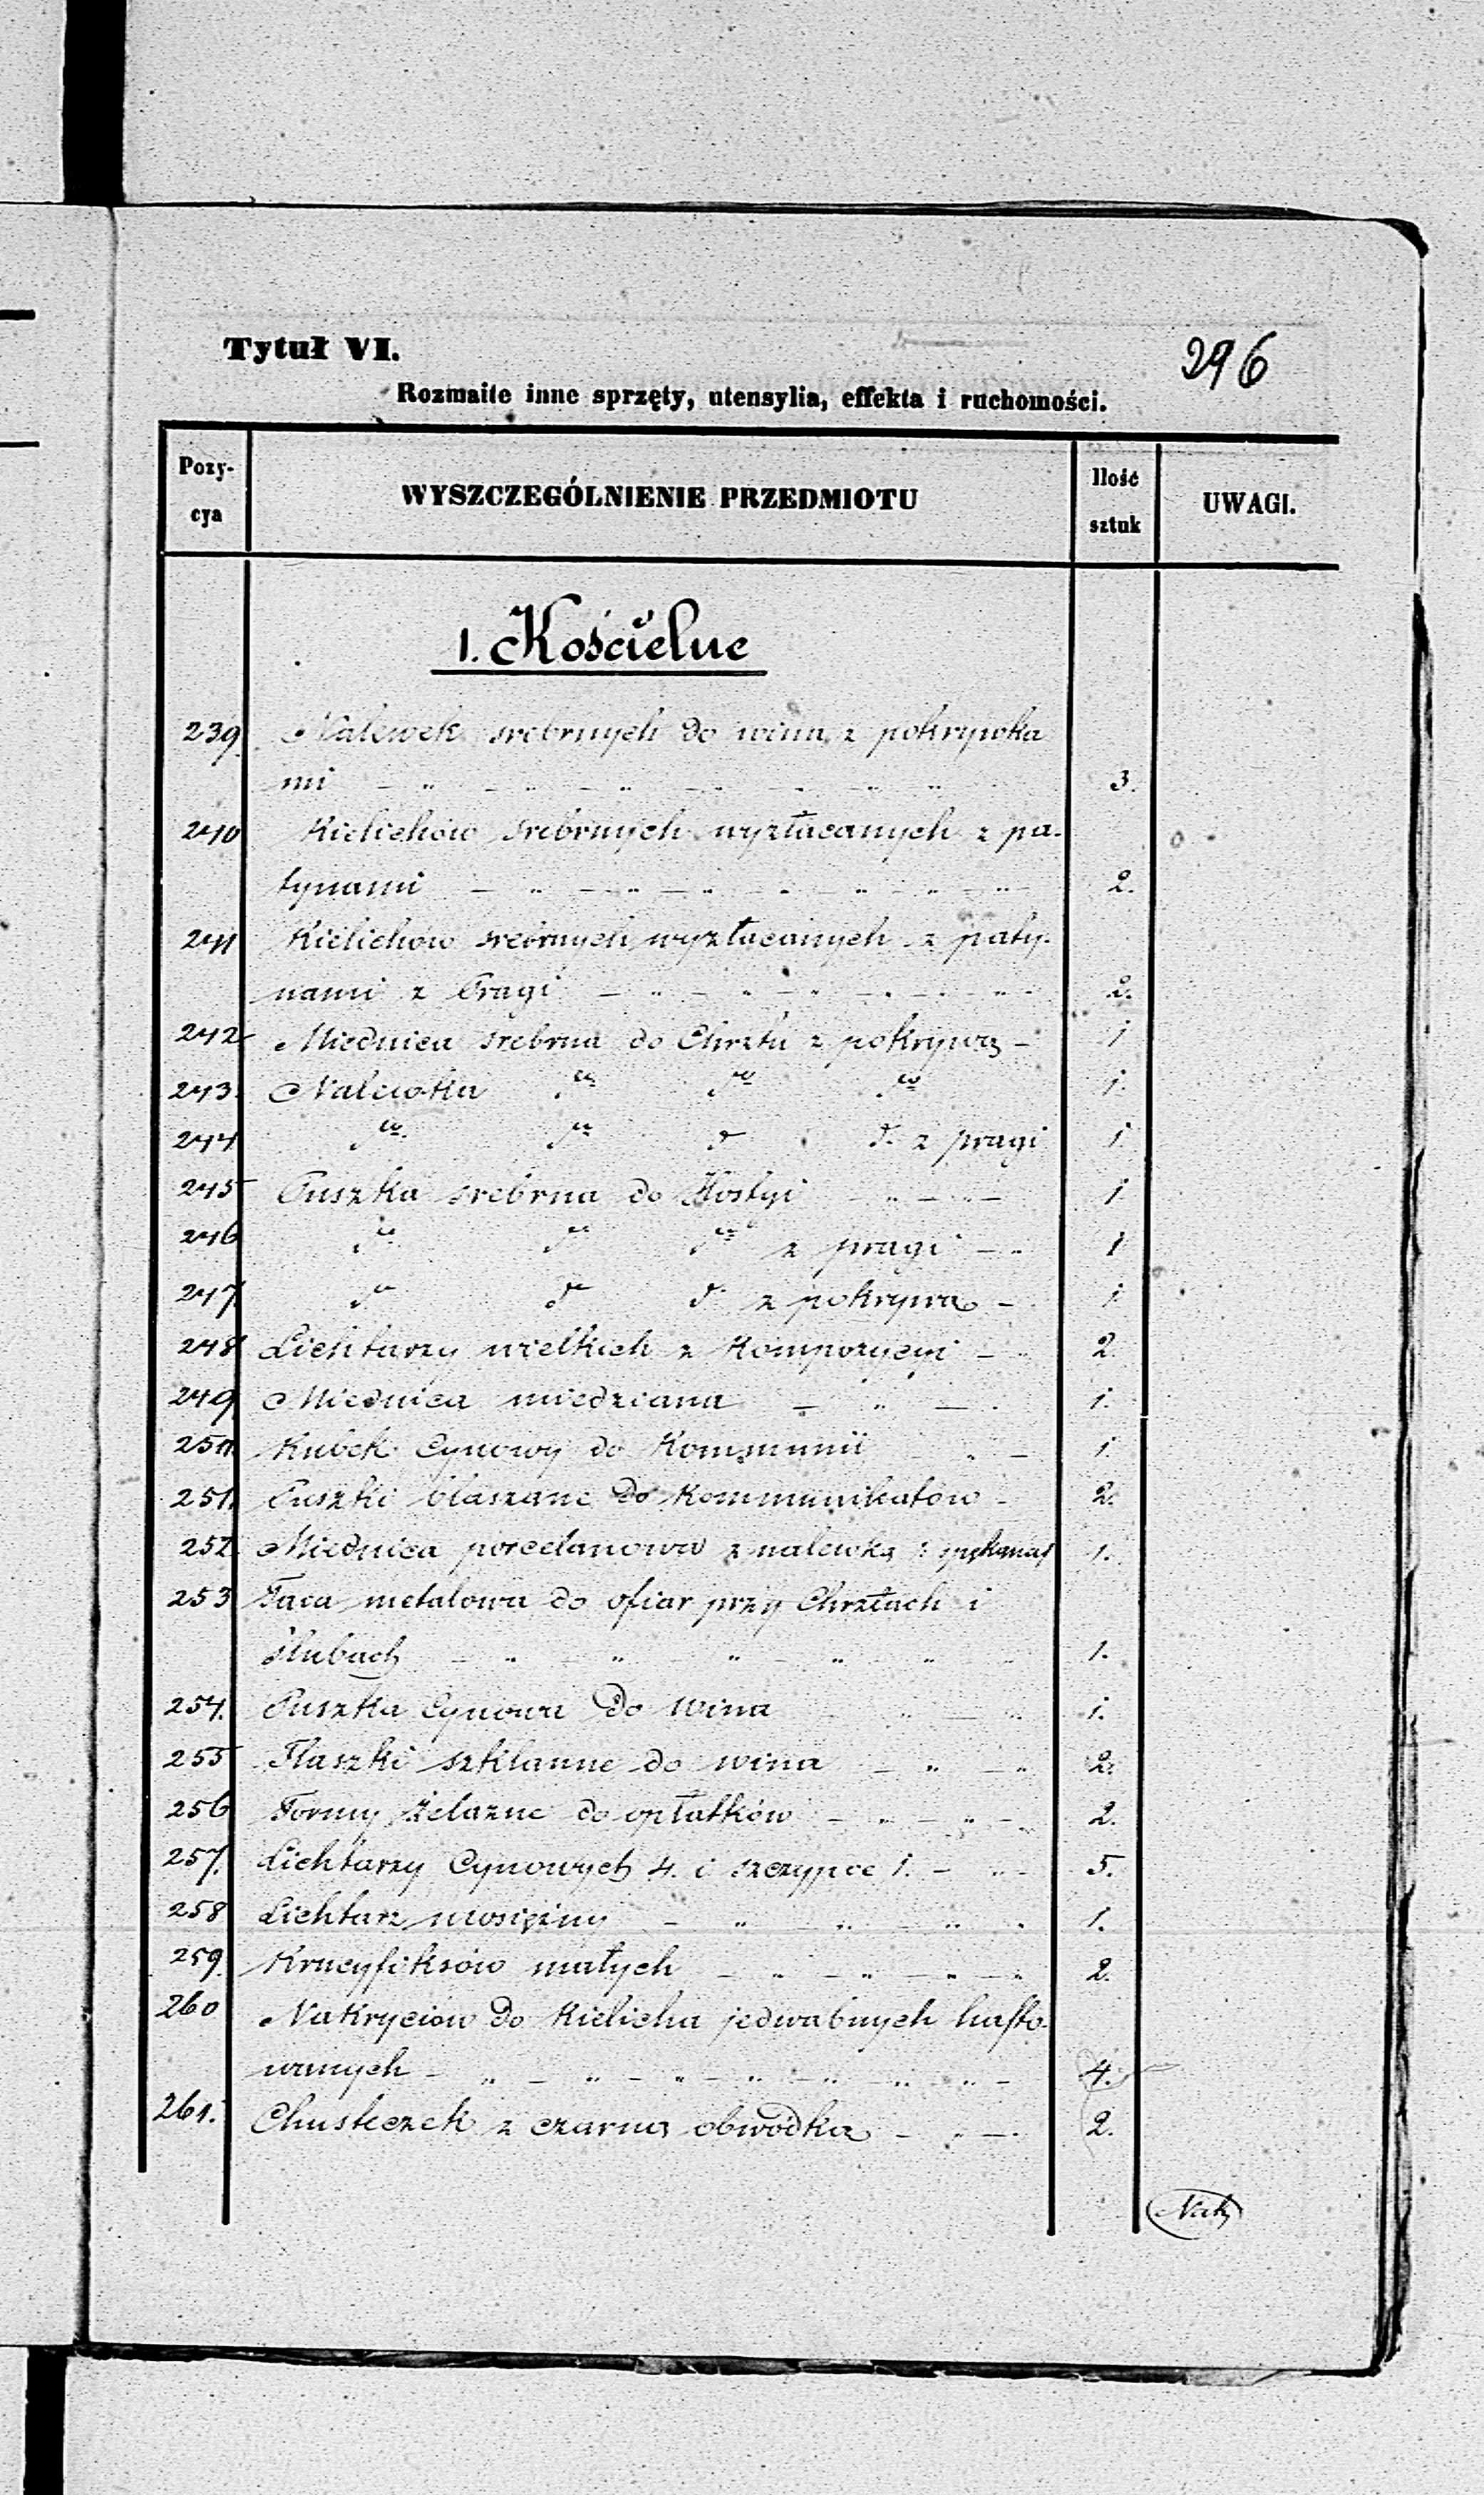 Tytuł VI.
296
Rozmaite inne sprzęty, utensylia, effekta i ruchomości.
Pozy-
cya
WYSZCZEGÓLNIENIE PRZEDMIOTU
Ilość
sztuk
UWAGI.
1. Kościelne
239. Nalewek srebrnych do wina z pokrywka
mi — " — " — " — " — " — " 3.
240 Kielichów srebrnych wyzłacanych z pa-
tynami — " — " — " — " — " — " — 2.
241 Kielichów srebrnych wyzłacanych z paty-
nami z Pragi — " — " — " — " — " — 2.
242 Miednica srebrna do Chrztu z pokrywą — 1
243. Nalewka dto dto dto 1.
244 dto dto d d. z pragi 1.
245 Puszka srebrna do Hostyi — " — " — 1
246 dto dto dto z pragi — " 1
247. dto dto d. z pokrywą — 1.
248 Lichtarzy wielkich z Kompozycyi — " 2.
249 Miednica miedziana — " — 1.
250. Kubek Cynowy do Kommunii — " — 1.
251. Puszki blaszane do Kommunikatów — 2.
252. Miednica porcelanowa z nalewką 1.
253 Taca metalowa do ofiar przy Chrztach i
Ślubach — " — " — " — " — " — 1.
254. Puszka Cynowa do Wina — " — " 1.
255 Flaszki szklanne do wina — " — " 2.
256 Formy żelazne do opłatków — " — " — 2.
257. Lichtarzy Cynowych 4. i szczypce 1. — " — 5.
258 Lichtarz mosiężny — " — " — " 1.
259. Krucyfiksów małych — " — " — " — " 2.
260 Nakryciów do Kielicha jedwabnych hafto-
wanych — " — " — " — " — " — " — " — 4.
261. Chusteczek z czarną obwódką — " — 2.
Nak